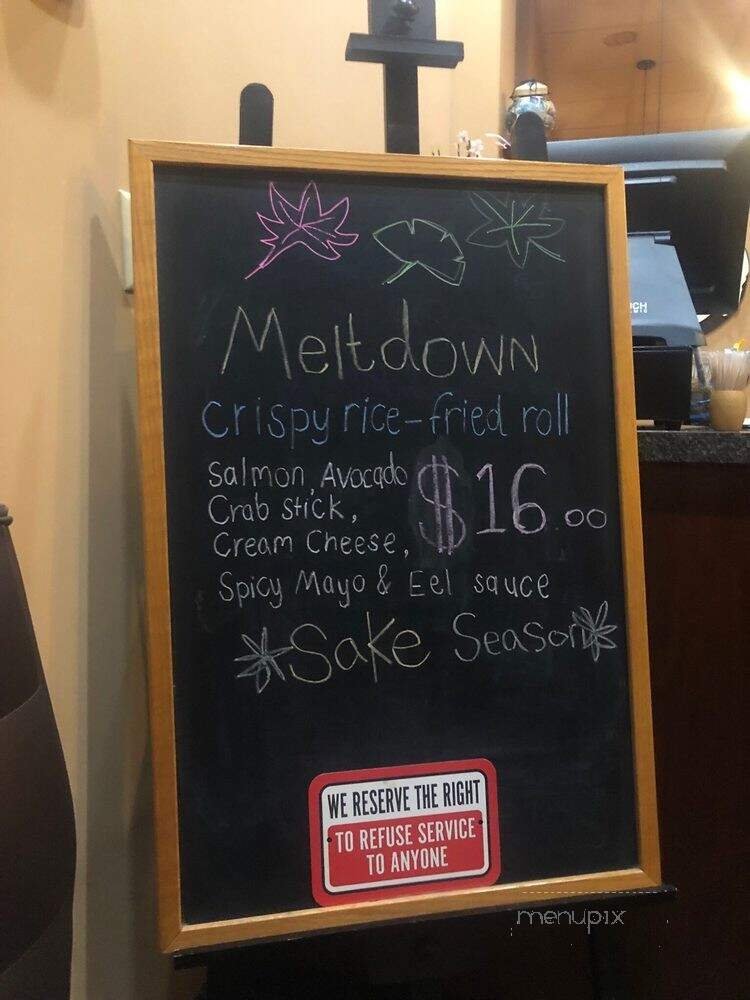 Meltdown
Crispy rice-fried roll
Salmon, Avocado
Crab stick,
$16.00
Cream Cheese,
Spicy Mayo & Eel sauce
Sake Season
WE RESERVE THE RIGHT
TO REFUSE SERVICE
TO ANYONE
menupix